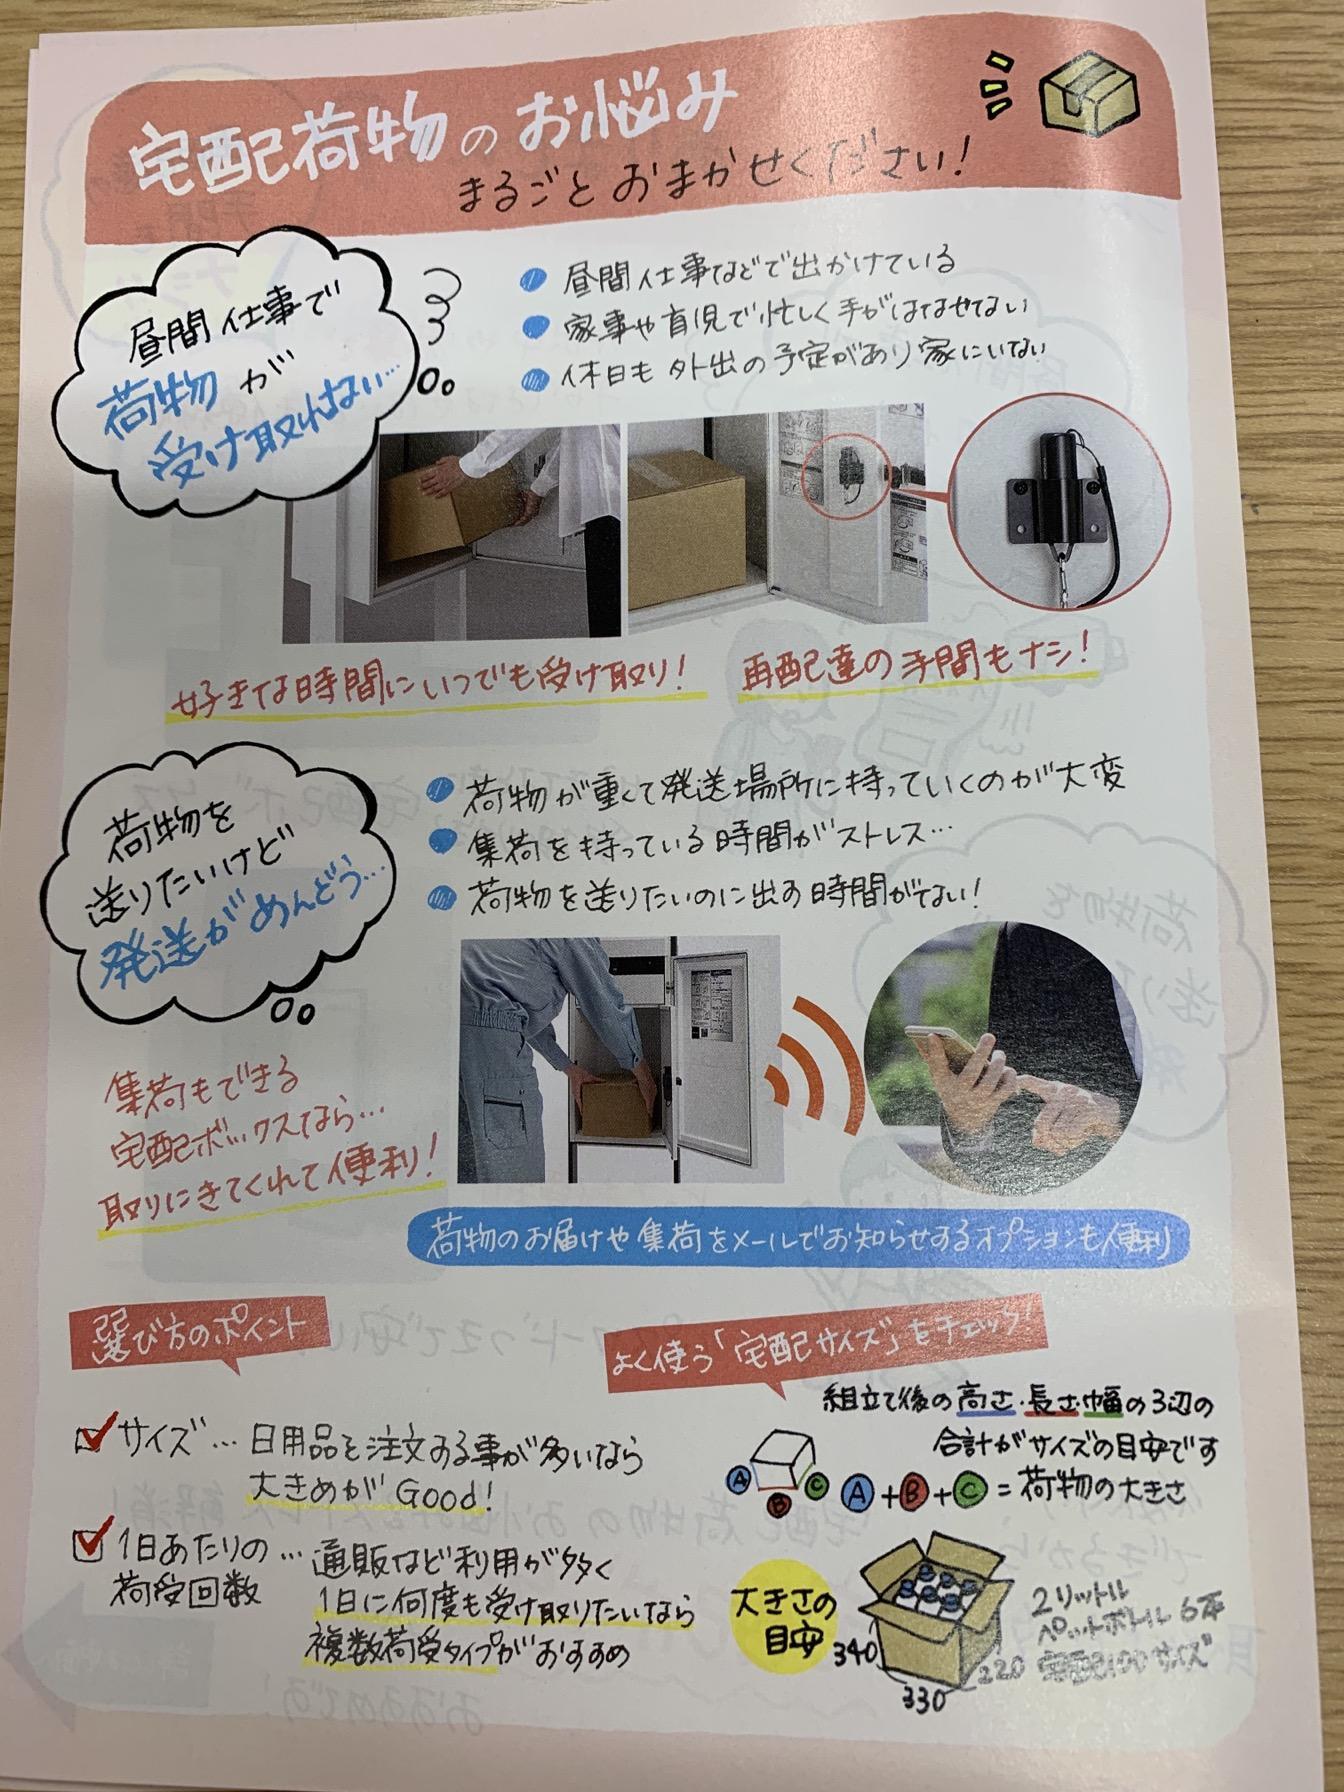 宅配荷物のお悩み
まるごとおまかせください！
昼間仕事で
荷物が
受け取れない…
昼間仕事などで出かけている
家事や育児で忙しく手がはなせない
休日も外出の予定があり家にいない
好きな時間にいつでも受け取り！
再配達の手間もナシ！
荷物を
送りたいけど
発送がめんどう…
荷物が重くて発送場所に持っていくのが大変
集荷を待っている時間がストレス…
荷物を送りたいのに出す時間がない！
集荷もできる
宅配ボックスなら…
取りにきてくれて便利！
荷物のお届けや集荷をメールでお知らせするオプションも便利
選び方のポイント
サイズ…日用品を注文する事が多いなら
大きめがGood！
1日あたりの
荷受回数
…通販など利用が多く
1日に何度も受け取りたいなら
複数荷受タイプがおすすめ
よく使う「宅配サイズ」をチェック！
組立て後の高さ・長さ・幅の3辺の
合計がサイズの目安です
A B C
A+B+C=荷物の大きさ
大きさの
目安
340
330
220
2リットル
ペットボトル6本
宅配100サイズ